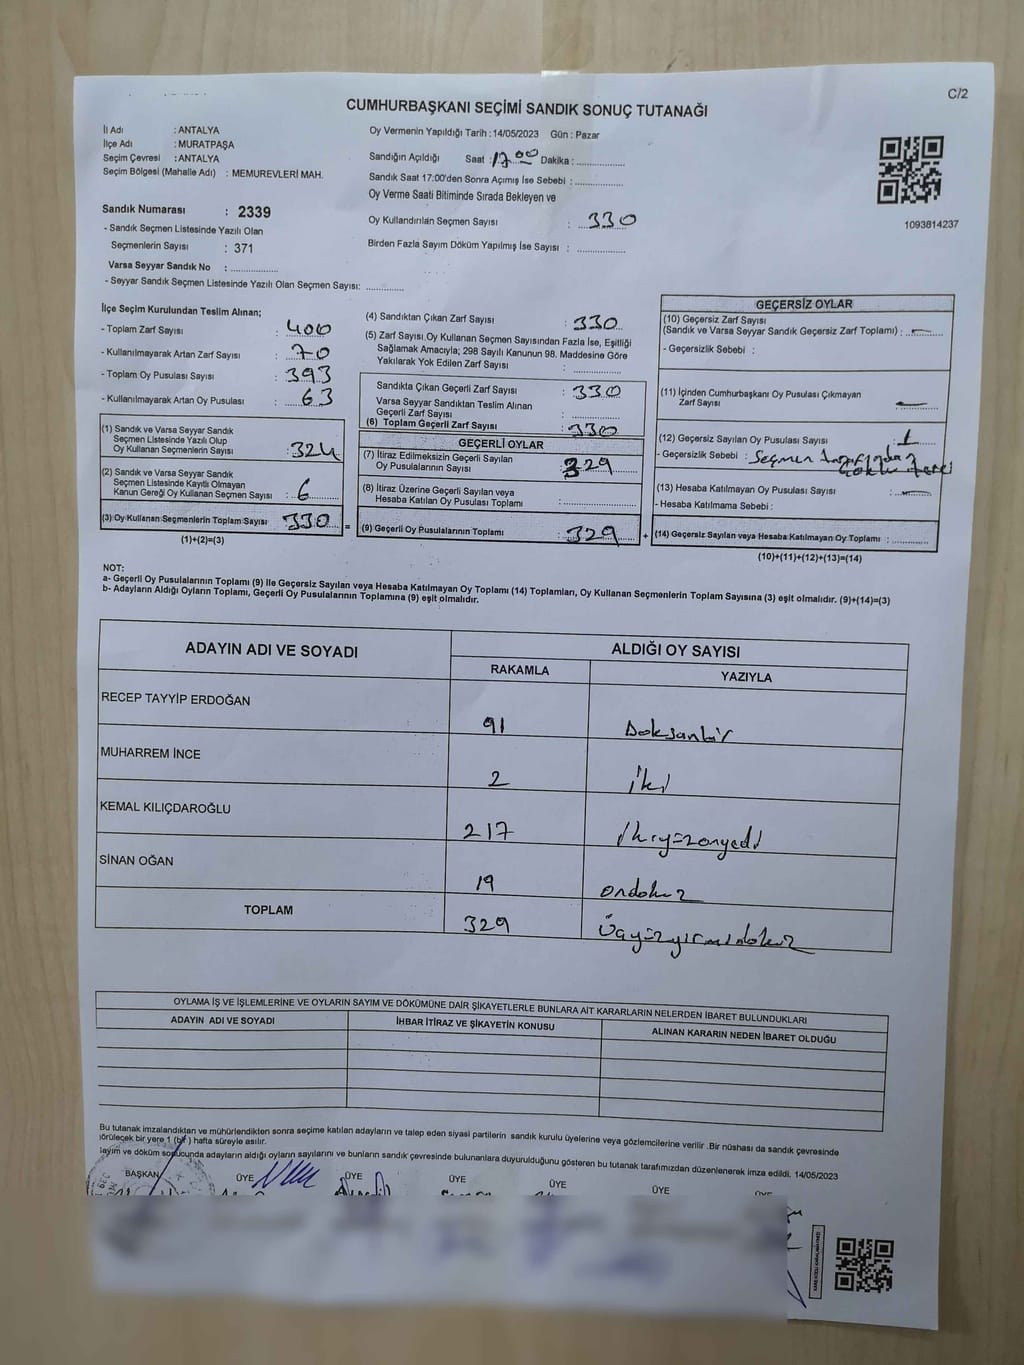 C/2
CUMHURBAŞKANI SEÇİMİ SANDIK SONUÇ TUTANAĞI
İl Adı : ANTALYA
İlçe Adı : MURATPAŞA
Seçim Çevresi : ANTALYA
Seçim Bölgesi (Mahalle Adı) : MEMUREVLERİ MAH.
Sandık Numarası : 2339
- Sandık Seçmen Listesinde Yazılı Olan
Seçmenlerin Sayısı : 371
Varsa Seyyar Sandık No : ..............
- Seyyar Sandık Seçmen Listesinde Yazılı Olan Seçmen Sayısı: ............
Oy Vermenin Yapıldığı Tarih : 14/05/2023 Gün : Pazar
Sandığın Açıldığı Saat : 17.00 Dakika : ..............
Sandık Saat 17:00'den Sonra Açımış İse Sebebi : ..............
Oy Verme Saati Bitiminde Sırada Bekleyen ve
Oy Kullandırılan Seçmen Sayısı : 330
Birden Fazla Sayım Döküm Yapılmış İse Sayısı : ..............
1093814237
İlçe Seçim Kurulundan Teslim Alınan;
- Toplam Zarf Sayısı : 400
- Kullanılmayarak Artan Zarf Sayısı : 70
- Toplam Oy Pusulası Sayısı : 393
- Kullanılmayarak Artan Oy Pusulası : 63
(1) Sandık ve Varsa Seyyar Sandık
Seçmen Listesinde Yazılı Olup
Oy Kullanan Seçmenlerin Sayısı : 324
(2) Sandık ve Varsa Seyyar Sandık
Seçmen Listesinde Kayıtlı Olmayan
Kanun Gereği Oy Kullanan Seçmen Sayısı : 6
(3) Oy Kullanan Seçmenlerin Toplam Sayısı : 330 =
(1)+(2)=(3)
(4) Sandıktan Çıkan Zarf Sayısı : 330
(5) Zarf Sayısı Oy Kullanan Seçmen Sayısından Fazla İse, Eşitliği
Sağlamak Amacıyla; 298 Sayılı Kanunun 98. Maddesine Göre
Yakılarak Yok Edilen Zarf Sayısı : ..............
Sandıkta Çıkan Geçerli Zarf Sayısı : 330
Varsa Seyyar Sandıktan Teslim Alınan
Geçerli Zarf Sayısı : ..............
(6) Toplam Geçerli Zarf Sayısı : 330
GEÇERLİ OYLAR
(7) İtiraz Edilmeksizin Geçerli Sayılan
Oy Pusulalarının Sayısı : 329
(8) İtiraz Üzerine Geçerli Sayılan veya
Hesaba Katılan Oy Pusulası Toplamı : ..............
(9) Geçerli Oy Pusulalarının Toplamı : 329 +
GEÇERSİZ OYLAR
(10) Geçersiz Zarf Sayısı
(Sandık ve Varsa Seyyar Sandık Geçersiz Zarf Toplamı) : —
- Geçersizlik Sebebi :
(11) İçinden Cumhurbaşkanı Oy Pusulası Çıkmayan
Zarf Sayısı : —
(12) Geçersiz Sayılan Oy Pusulası Sayısı : 1
- Geçersizlik Sebebi : Seçmen
(13) Hesaba Katılmayan Oy Pusulası Sayısı : —
- Hesaba Katılmama Sebebi :
(14) Geçersiz Sayılan veya Hesaba Katılmayan Oy Toplamı : ............
(10)+(11)+(12)+(13)=(14)
NOT:
a- Geçerli Oy Pusulalarının Toplamı (9) ile Geçersiz Sayılan veya Hesaba Katılmayan Oy Toplamı (14) Toplamları, Oy Kullanan Seçmenlerin Toplam Sayısına (3) eşit olmalıdır. (9)+(14)=(3)
b- Adayların Aldığı Oyların Toplamı, Geçerli Oy Pusulalarının Toplamına (9) eşit olmalıdır.
ADAYIN ADI VE SOYADI ALDIĞI OY SAYISI
RAKAMLA YAZIYLA
RECEP TAYYİP ERDOĞAN 91 Doksanbir
MUHARREM İNCE 2 iki
KEMAL KILIÇDAROĞLU 217 ikiyüzonyedi
SİNAN OĞAN 19 ondokuz
TOPLAM 329 Üçyüzyirmidokuz
OYLAMA İŞ VE İŞLEMLERİNE VE OYLARIN SAYIM VE DÖKÜMÜNE DAİR ŞİKAYETLERLE BUNLARA AİT KARARLARIN NELERDEN İBARET BULUNDUKLARI
ADAYIN ADI VE SOYADI İHBAR İTİRAZ VE ŞİKAYETİN KONUSU ALINAN KARARIN NEDEN İBARET OLDUĞU
Bu tutanak imzalandıktan ve mühürlendikten sonra seçime katılan adayların ve talep eden siyasi partilerin sandık kurulu üyelerine veya gözlemcilerine verilir .Bir nüshası da sandık çevresinde
görülecek bir yere 1 (bir) hafta süreyle asılır.
Sayım ve döküm sonucunda adayların aldığı oyların sayılarını ve bunların sandık çevresinde bulunanlara duyurulduğunu gösteren bu tutanak tarafımızdan düzenlenerek imza edildi. 14/05/2023
BAŞKAN ÜYE ÜYE ÜYE ÜYE ÜYE ÜYE